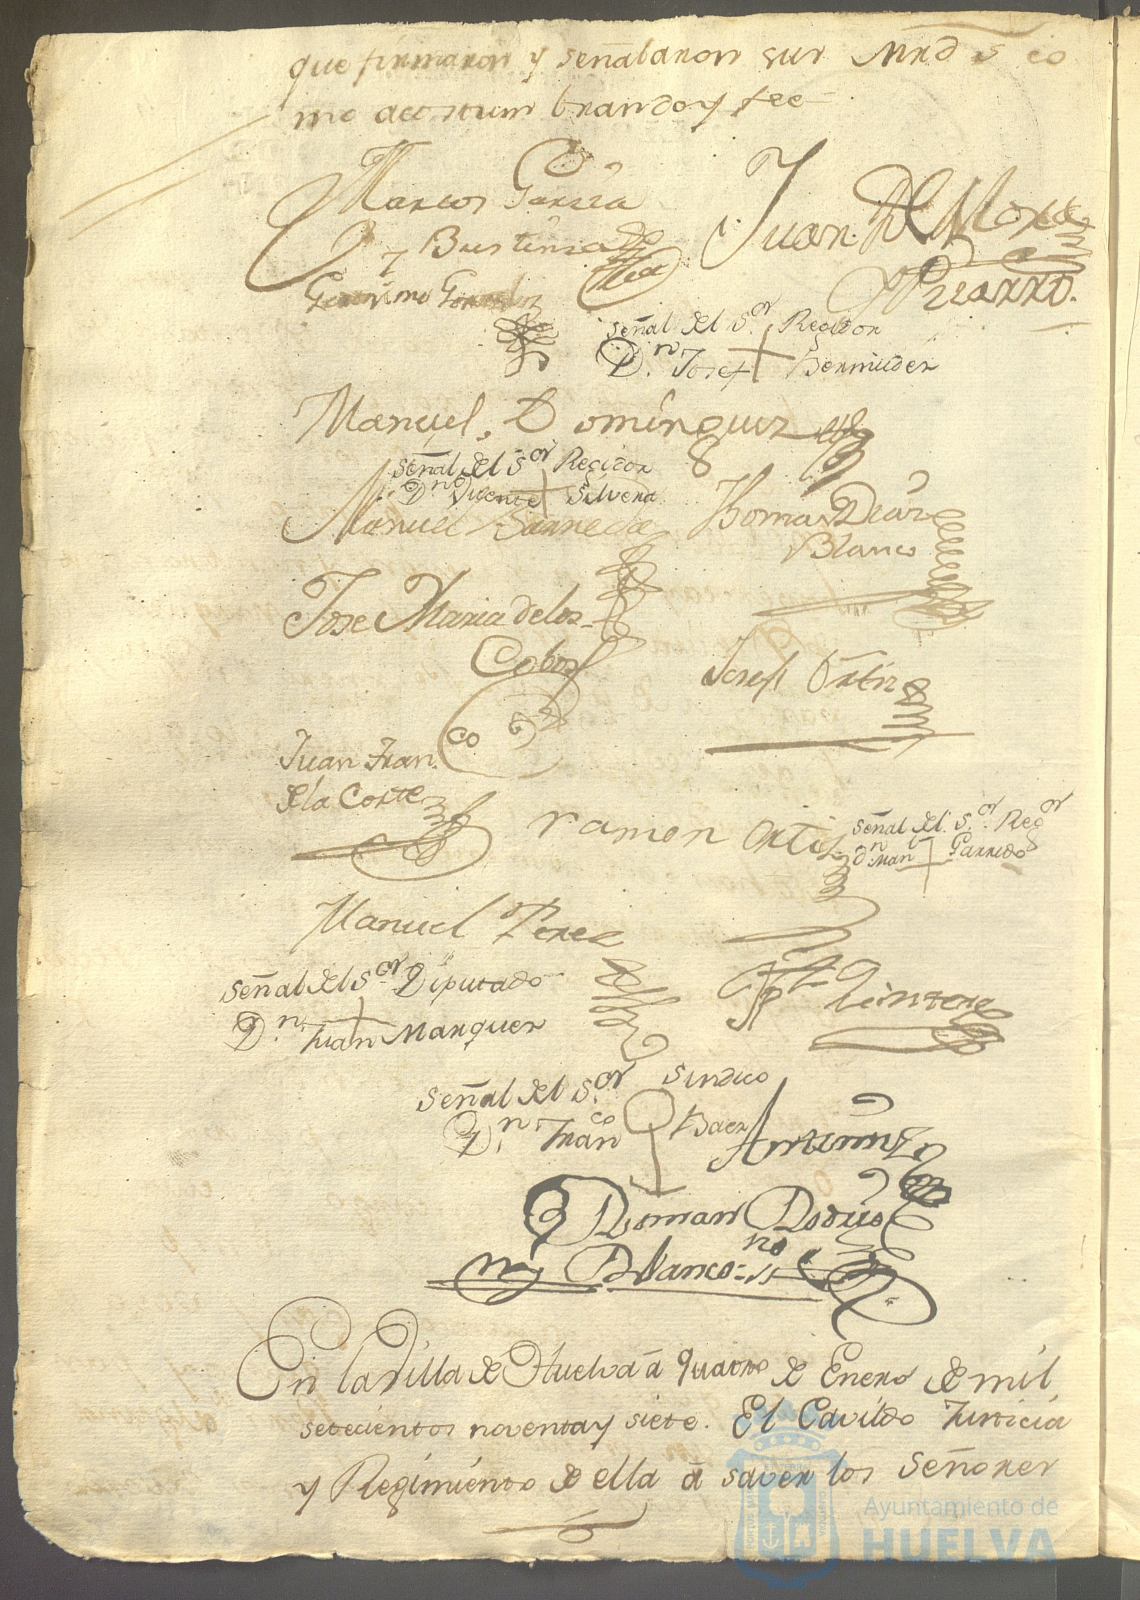 que firmaron y señalaron sus Mrd s co
mo acostumbrando y fee
Marcos Garcia
y Bustinza
Juan Del Mora
y Pizarro.
Geronimo Gonzalez
Señal del S.or Regidor
D.n Josef Bermudez
Manuel Dominguez
Señal del S.or Regidor
D.n Vicente Silvera
Manuel Barreda
Thomas Diaz
Blanco
Jose Maria de los
Cobos
Josef Ortiz
Juan Fran.co
de la Corte
ramon Ortis
Señal del S.or Reg.or
d.n Man.l Garrido
Manuel Perez
Señal del S.or Diputado
D.n Juan Marquez
Quintero
Señal del S.or Sindico
D.n Fran.co Baez
Ante mi
Roman
Blanco
En la Villa de Huelva â quatro de Enero de mil
setecientos noventa y siete. El Cavildo Justicia
y Regimiento de ella â saver los Señores
Ayuntamiento de
HUELVA